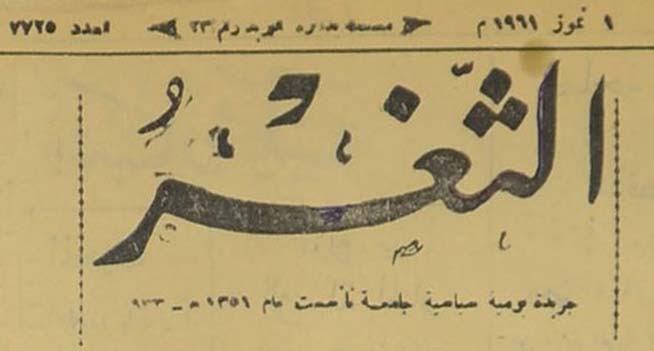 ١ تموز ١٩٦١ م مسسة بدارة البريد رقم ٢٣ العدد ٧٧٢٥
الثَّغْرُ
جريدة يومية سياسية جامعة تأسست عام ١٣٥١ ه - ٩٣٣